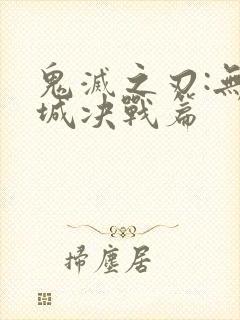 鬼滅之刃:無
城决戰篇
掃塵居